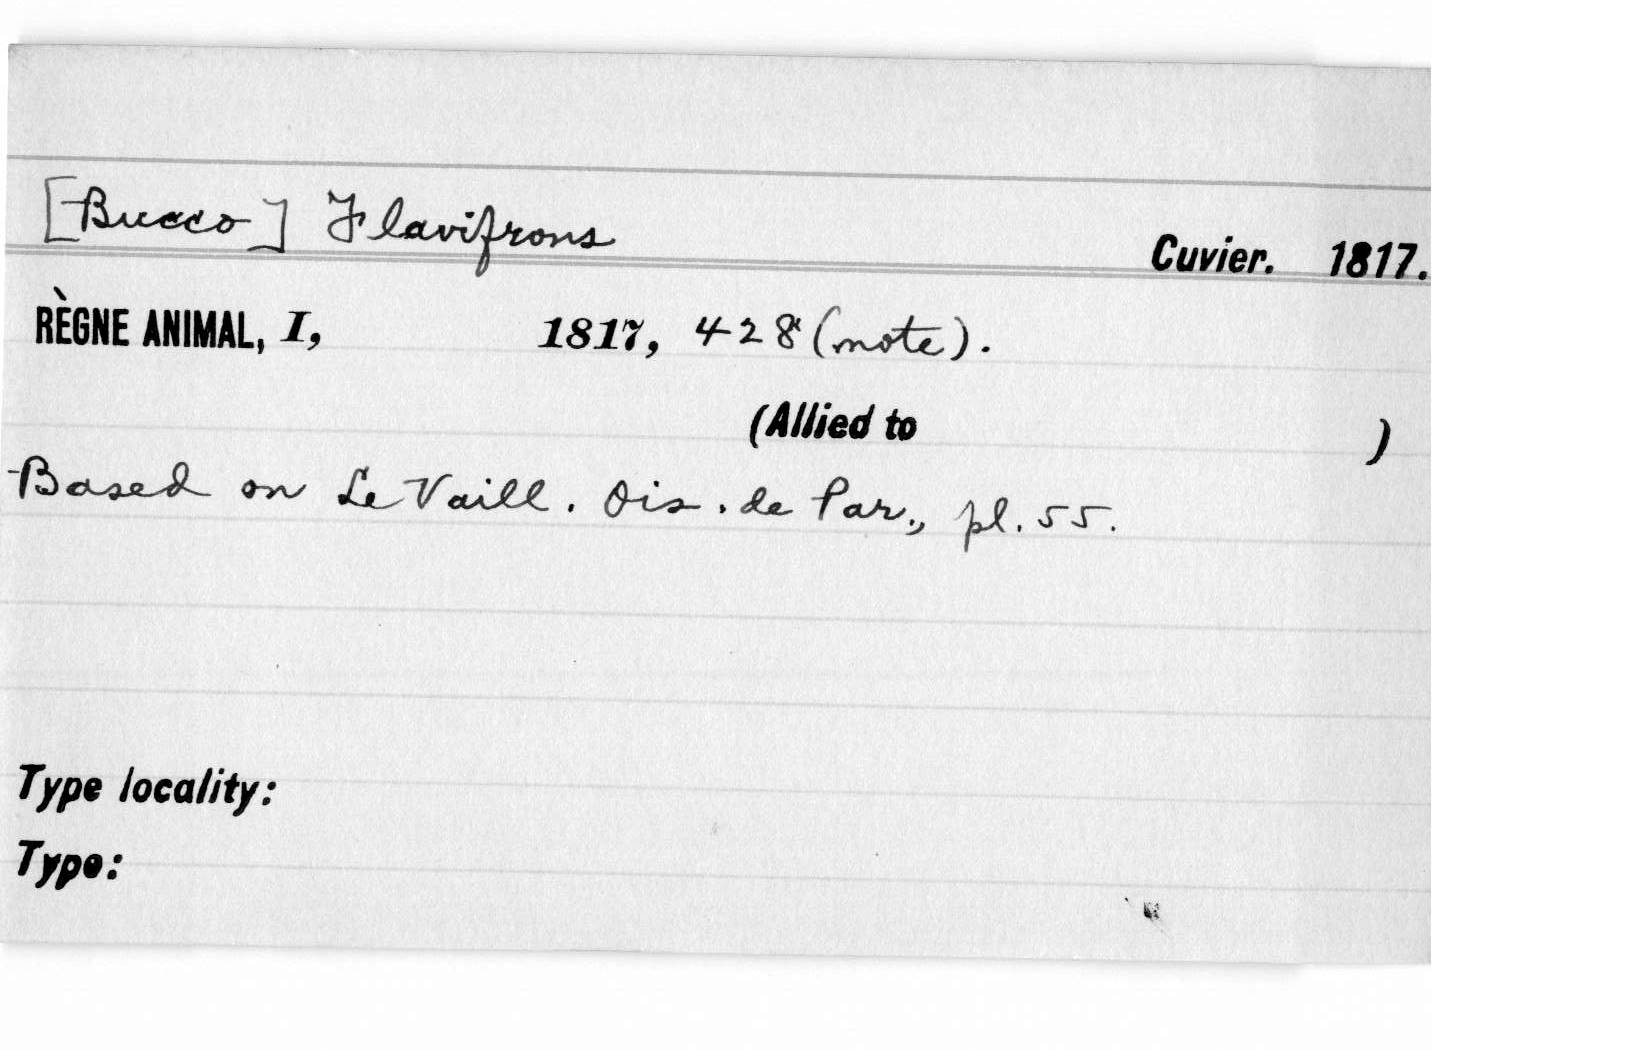 [Bucco] Flavifrons Cuvier. 1817.
RÈGNE ANIMAL, I, 1817, 428 (note).
(Allied to )
Based on Le Vaill. Ois. de Par., pl. 55.
Type locality:
Type: